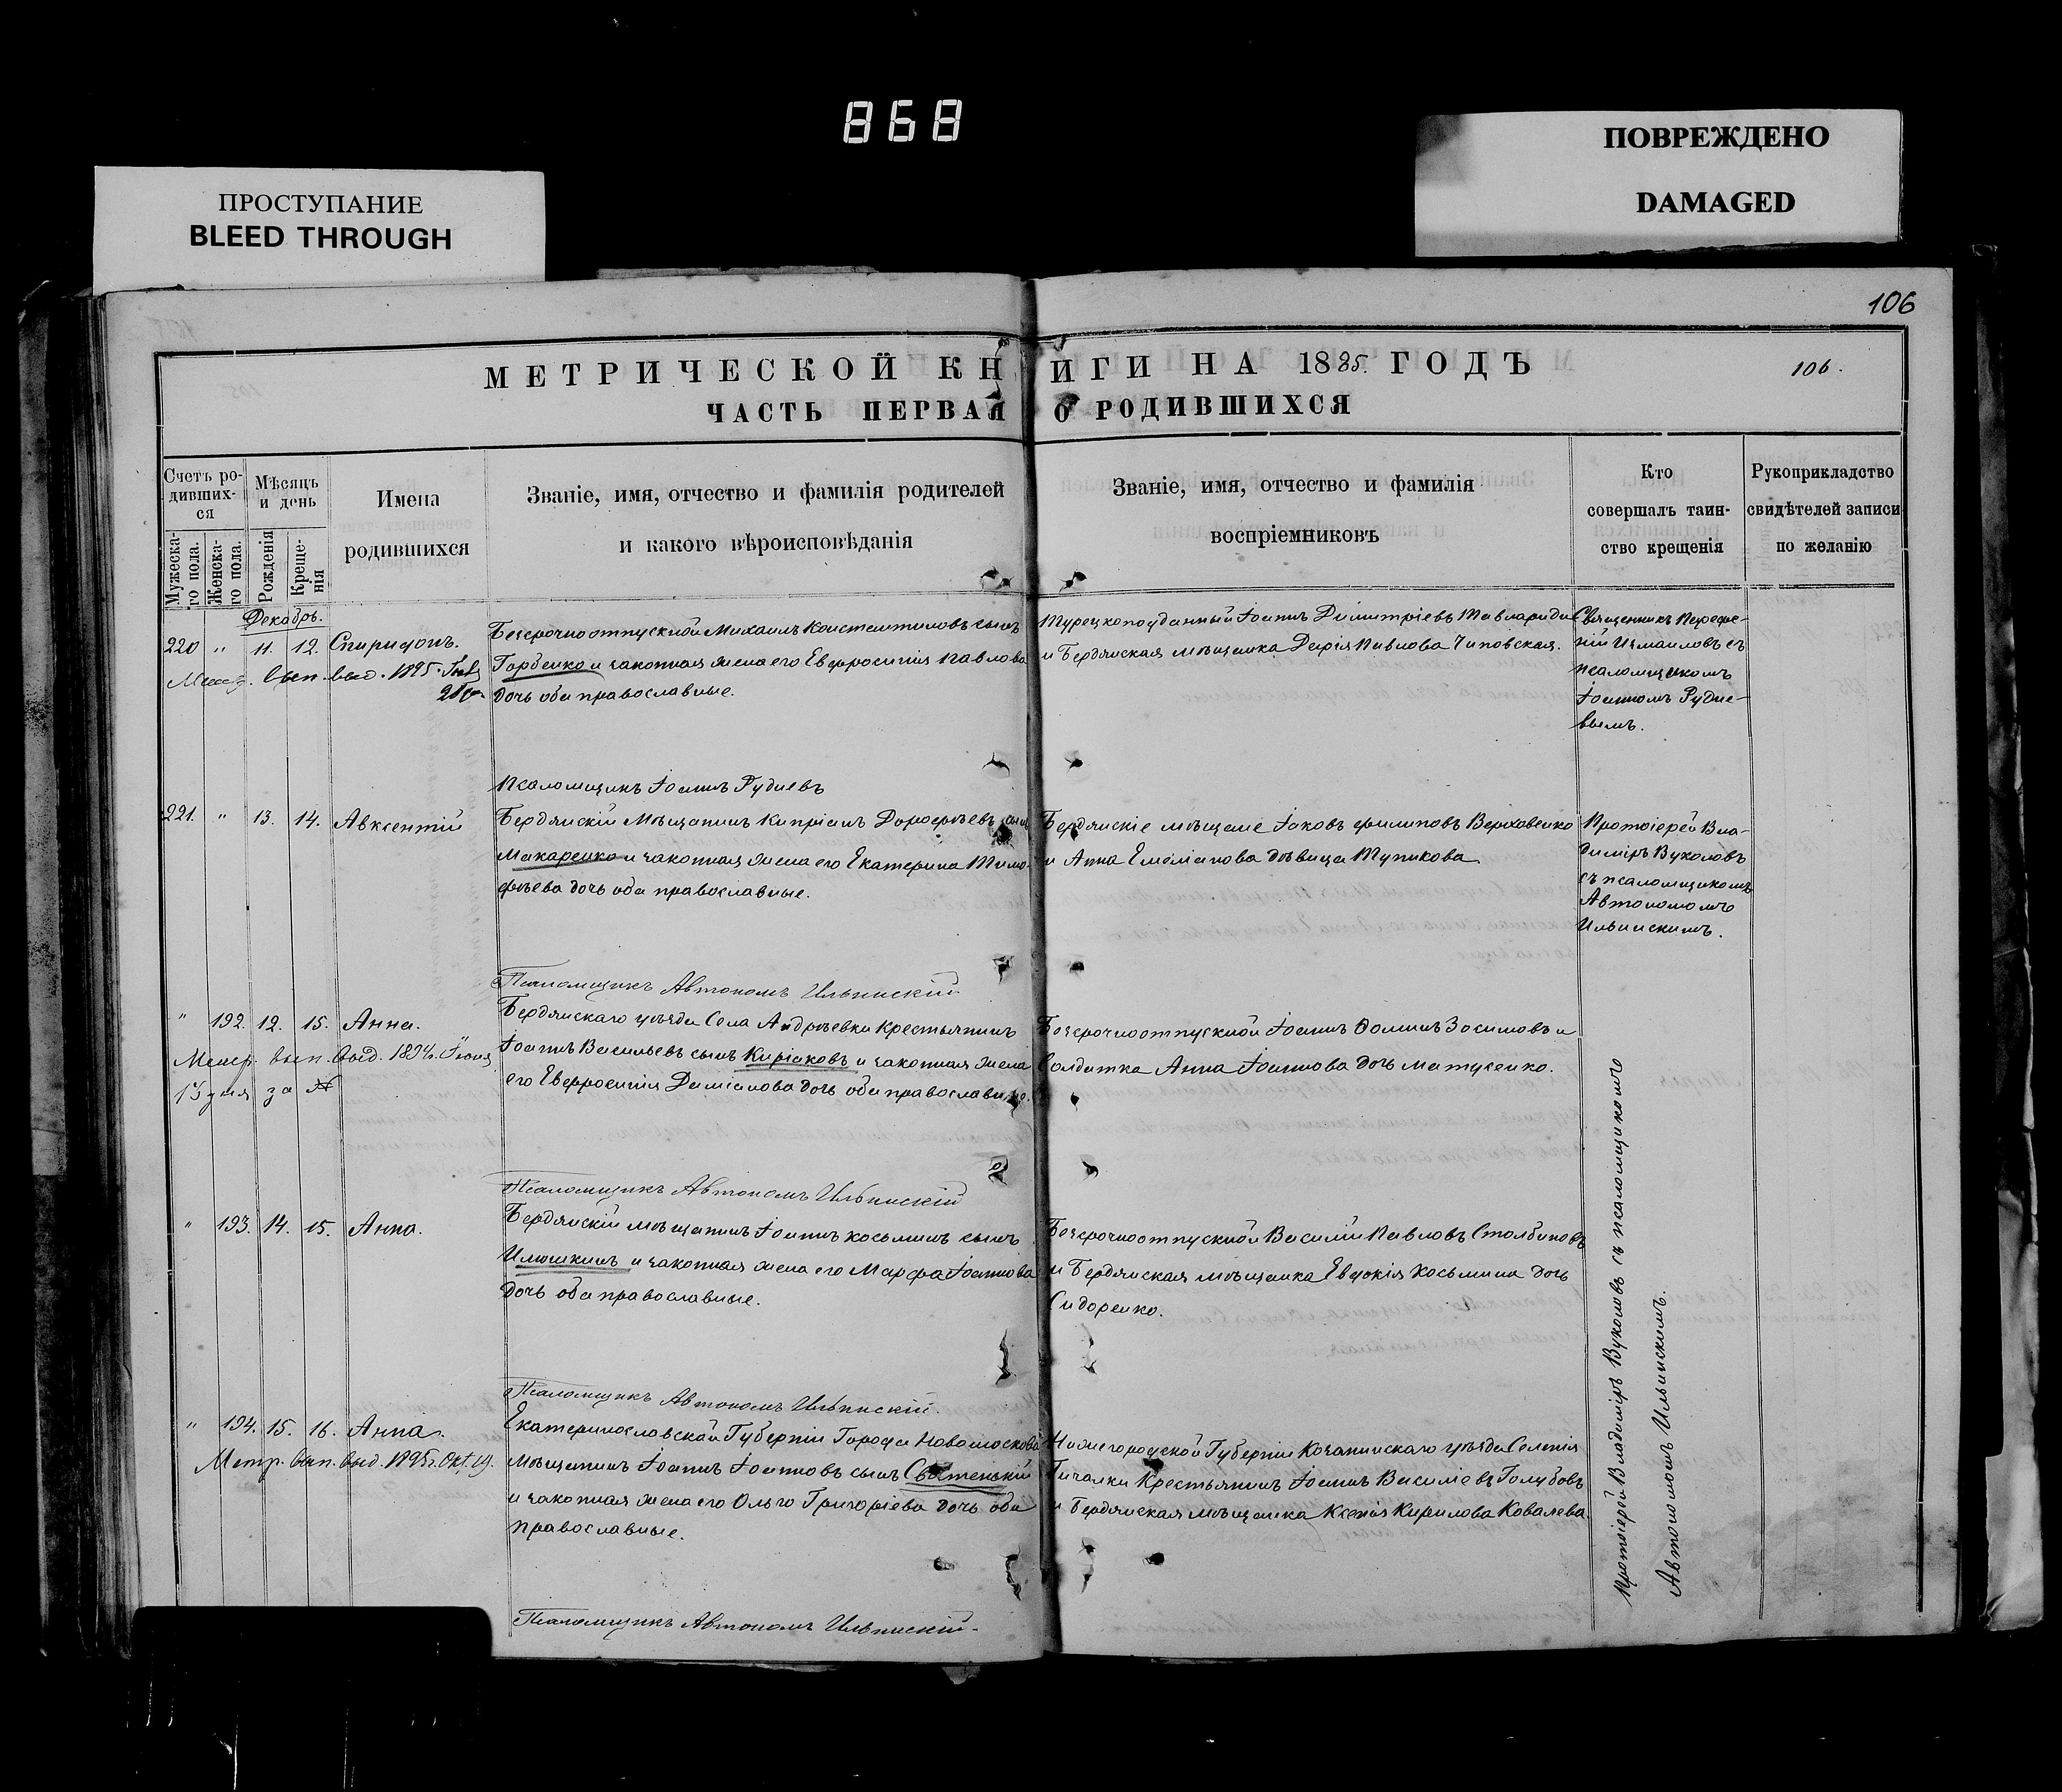 868
ПРОСТУПАНИЕ
BLEED THROUGH
ПОВРЕЖДЕНО
DAMAGED
106
МЕТРИЧЕСКОЙ КНИГИ НА 1885. ГОДЪ
106.
ЧАСТЬ ПЕРВАЯ О РОДИВШИХСЯ
Счетъ ро-
дивших-
ся
Мужеска-
го пола.
Женска-
го пола.
Мѣсяцъ
и день
Рожденія
Креще-
нія
Имена
родившихся
Званіе, имя, отчество и фамилія родителей
и какого вѣроисповѣданія
Званіе, имя, отчество и фамилія
воспріемниковъ
Кто
совершалъ таин-
ство крещенія
Рукоприкладство
свидѣтелей записи
по желанію
Декабрь.
220 " 11. 12. Спиридонъ.
вып. выд. 1895.
Безсрочноотпускной Михаилъ Константиновъ сынъ
Горбенко и законная жена его Евфросинія Павлова
дочь оба православные.
Турецкоподданный Іоаннъ Димитріевъ Тавлариди
и Бердянская мѣщанка Дарія Павлова Чиповская.
Священникъ
Измаиловъ съ
псаломщикомъ
Іоанномъ Рудне-
вымъ.
Псаломщикъ Іоаннъ Рудневъ
221. " 13. 14. Авксентій
Бердянскій Мѣщанинъ Кипріанъ Дорофѣевъ сынъ
Макаренко и законная жена его Екатерина Тимо-
фѣева дочь оба православные.
Бердянскіе мѣщане Іаковъ Филиповъ Верховенко
и Анна Емеліанова дѣвица Тупикова
Протоіерей Вла-
диміръ Вуколовъ
съ псаломщикомъ
Автономомъ
Ильинскимъ.
Псаломщикъ Автономъ Ильинскій
" 192. 12. 15. Анна.
Метр. вып. выд. 1894. Іюня
15 дня за №
Бердянскаго уѣзда Села Андрѣевки Крестьянинъ
Іоаннъ Васильевъ сынъ Киріаковъ и законная жена
его Евфросинія Даміанова дочь оба православные.
Безсрочноотпускной Іоаннъ Зосимовъ и
Солдатка Анна Іоаннова дочь Матусенко.
Псаломщикъ Автономъ Ильинскій
" 193. 14. 15. Анна.
Бердянскій мѣщанинъ Іоаннъ Косьминъ сынъ
Илюшкинъ и законная жена его Марфа Іоаннова
дочь оба православные.
Безсрочноотпускной Василій Павловъ Столбиновъ
и Бердянская мѣщанка Евдокія Косьмина дочь
Сидоренко.
Псаломщикъ Автономъ Ильинскій.
" 194. 15. 16. Анна.
Метр. вып. выд. 1895г. Окт. 19.
Екатеринославской Губерніи Города Новомосковска
Мѣщанинъ Іоаннъ Іоанновъ сынъ
и законная жена его Ольга Григоріева дочь оба
православные.
Нижегородской Губерніи уѣзда Селенія
Пичалки Крестьянинъ Іоаннъ Василіевъ Голубовъ
и Бердянская мѣщанка Ксенія Кирилова Ковалева.
Протоіерей Владиміръ Вуколовъ съ псаломщикомъ
Автономомъ Ильинскимъ.
Псаломщикъ Автономъ Ильинскій.